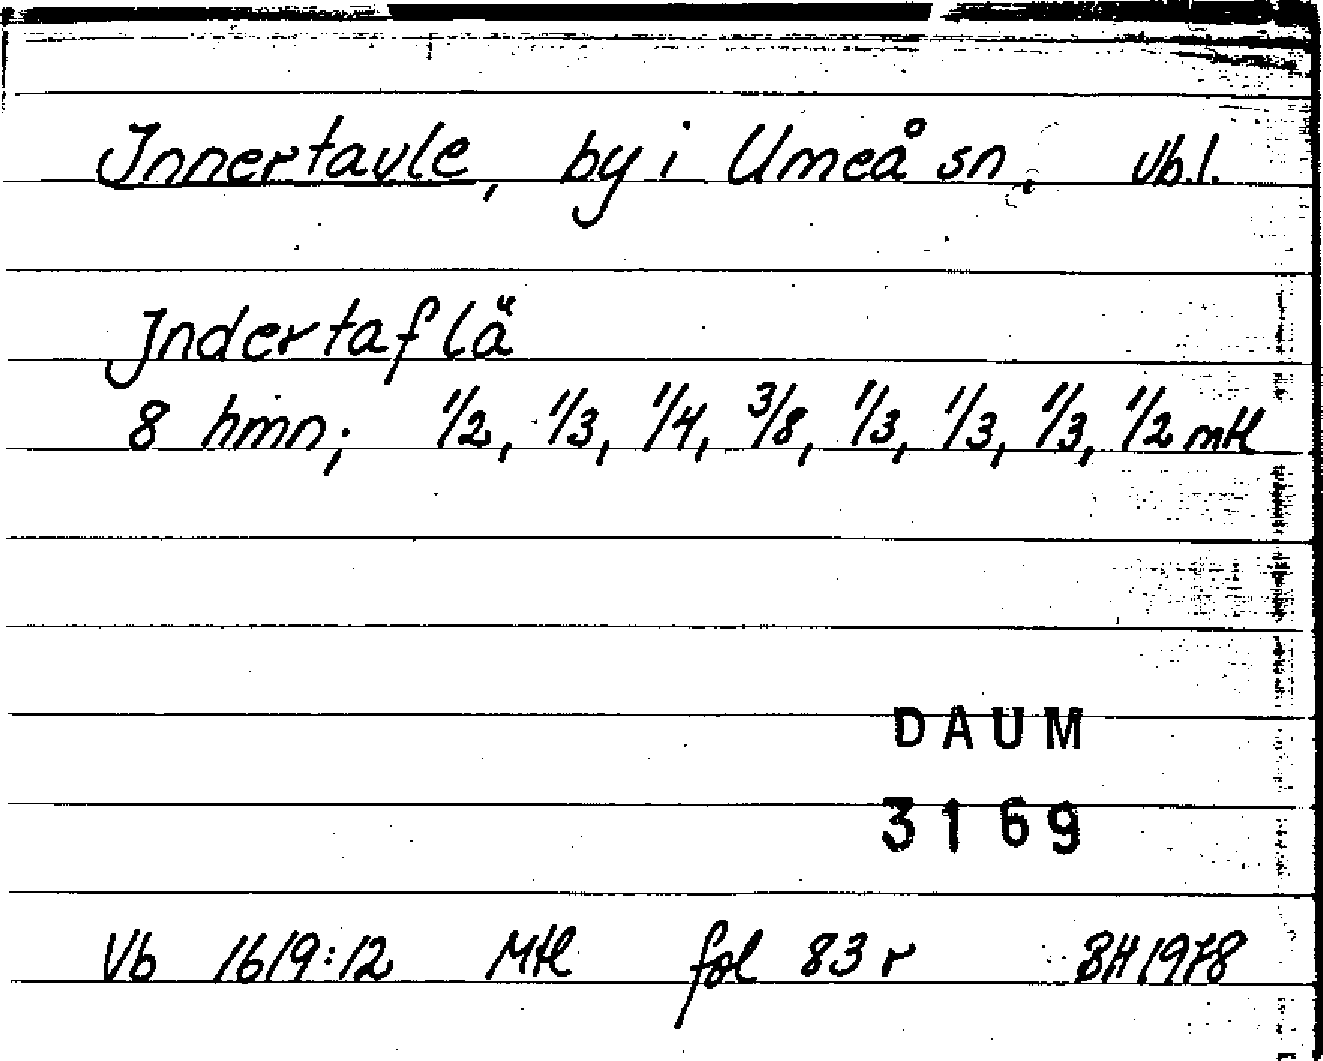 Innertavle, by i Umeå sn. Vb.l.
Jndertaflä
8 hmn; 1/2, 1/3, 1/4, 3/8, 1/3, 1/3, 1/3, 1/2 mtl
DAUM
3169
Vb 1619:12 Mtl fol 83 r BH 1978